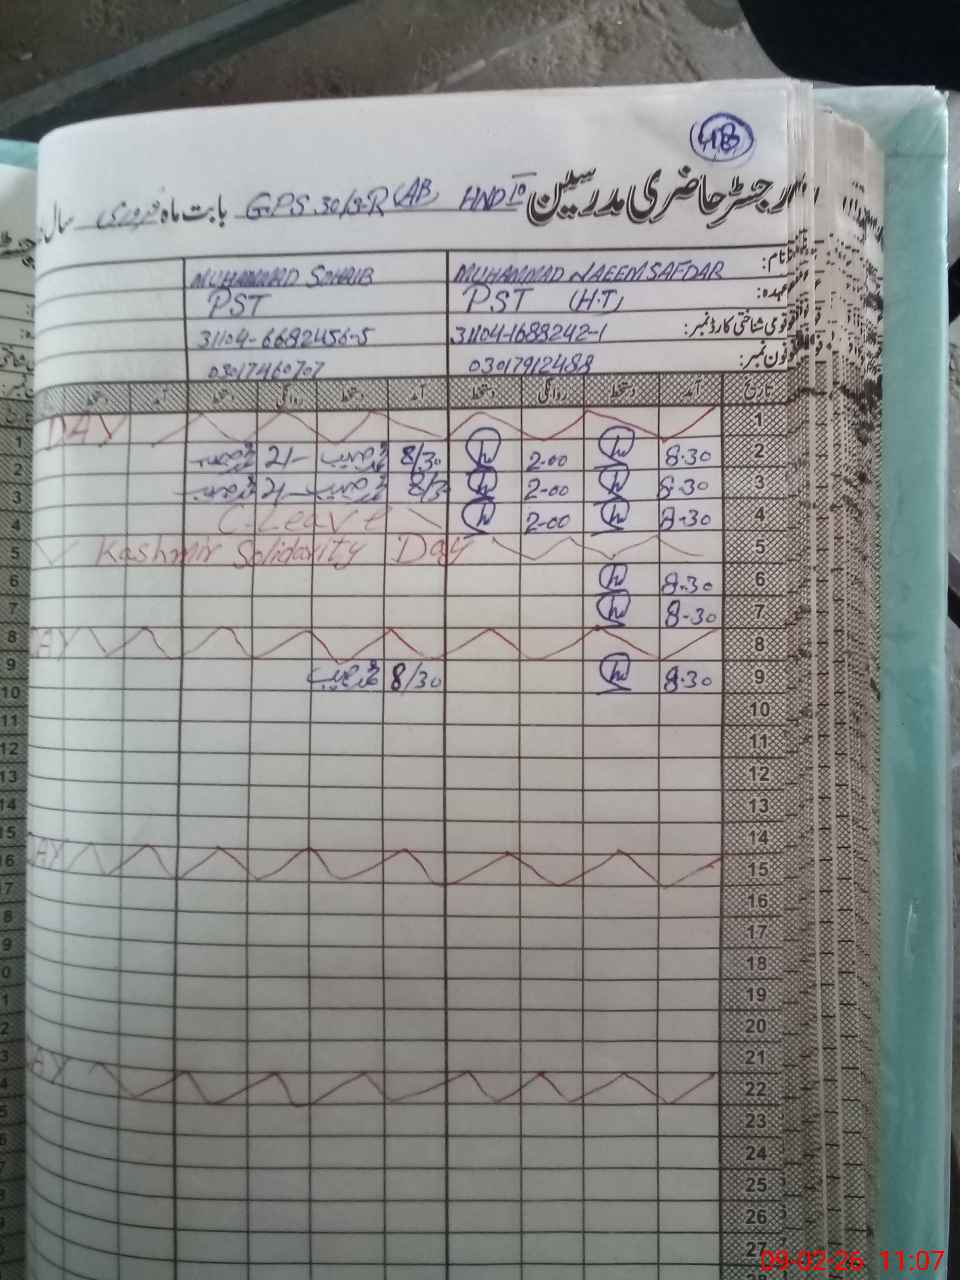 48
رجسٹر حاضری مدرسین HND GPS 30/3-R (AB) بابت ماہ فروری سال
نام: MUHAMMAD NAEEM SAFDAR MUHAMMAD SOHAIB
عہدہ: PST (H.T) PST
قومی شناختی کارڈ نمبر: 31104-1688242-1 31104-6682456-5
فون نمبر: 03017912488 03017460707
تاریخ آمد دستخط روانگی دستخط آمد دستخط روانگی دستخط آمد دستخط
1 DAY
2 8.30 2-00 8/30 2/-
3 8-30 2-00 2/-
4 8-30 2-00 C-Leave
5 Kashmir Solidarity Day
6 8.30
7 8-30
8 DAY
9 8.30 8/30
10
11
12
13
14
15 DAY
16
17
18
19
20
21
22 DAY
23
24
25
26
27
09-02-26 11:07